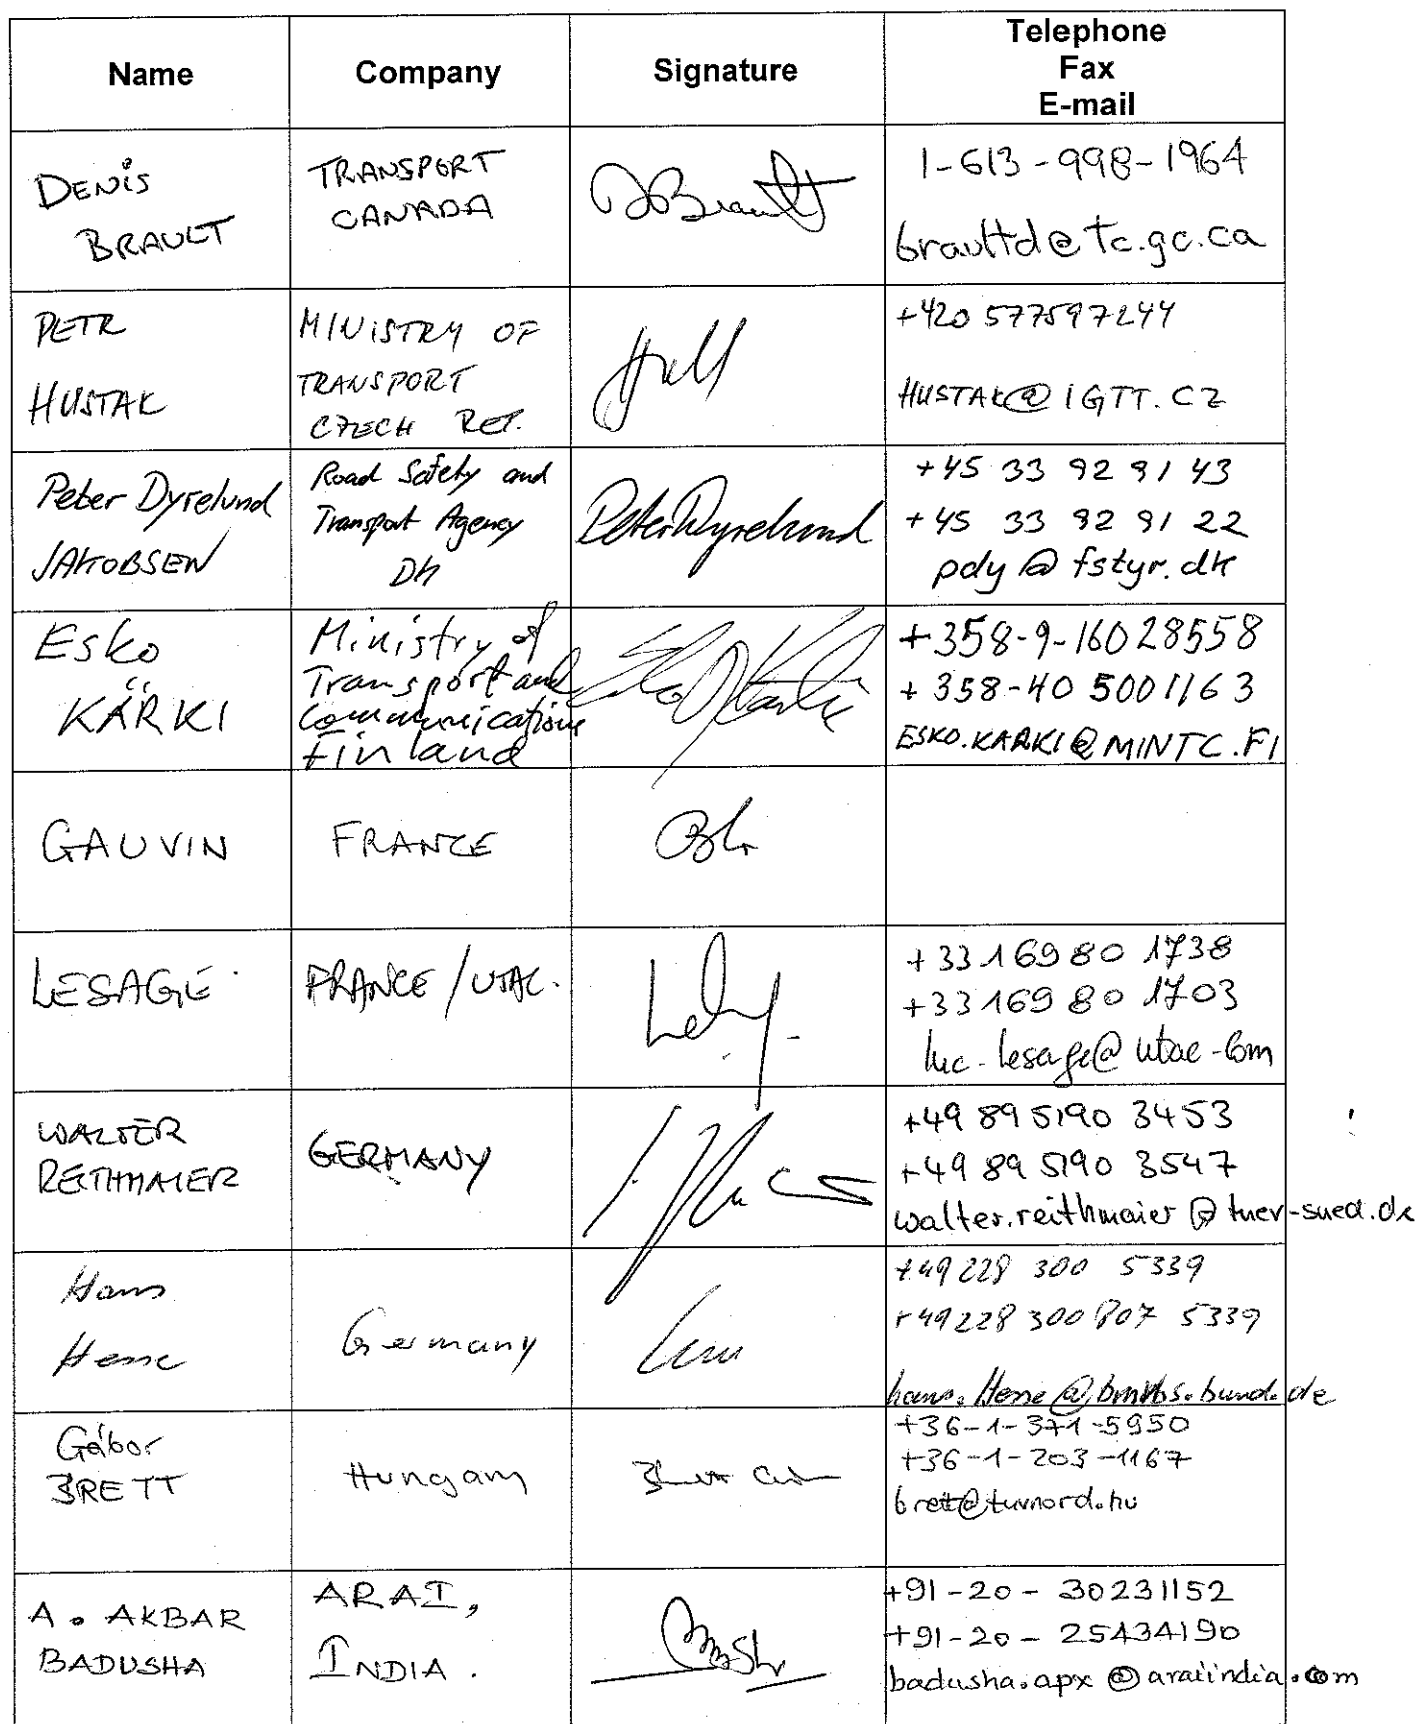 Name Company Signature Telephone
Fax
E-mail
DENIS
BRAULT
TRANSPORT
CANADA
DBrault
1-613-998-1964
braultd@tc.gc.ca
PETR
HUSTAK
MINISTRY OF
TRANSPORT
CZECH REP.
+420 577597244
HUSTAK@IGTT.CZ
Peter Dyrelund
JAKOBSEN
Road Safety and
Transport Agency
DK
Peter Dyrelund
+45 33 92 91 43
+45 33 92 91 22
pdy@fstyr.dk
Esko
KÄRKI
Ministry of
Transport and
Communications
Finland
+358-9-16028558
+358-40 5001163
ESKO.KARKI@MINTC.FI
GAUVIN
FRANCE
LESAGE
FRANCE/UTAC.
+33 169 80 1738
+33 169 80 1703
luc.lesage@utac.com
WALTER
REITHMAIER
GERMANY
+49 89 5190 3453
+49 89 5190 3547
walter.reithmaier@tuev-sued.de
Hans
Hesse
Germany
+49 228 300 5339
+49 228 300 807 5339
hans.Hesse@bmvbs.bund.de
Gábor
BRETT
Hungary
+36-1-371-5950
+36-1-203-1167
brett@tuvnord.hu
A. AKBAR
BADUSHA
ARAI,
INDIA.
+91-20-30231152
+91-20-25434190
badusha.apx@araiindia.com